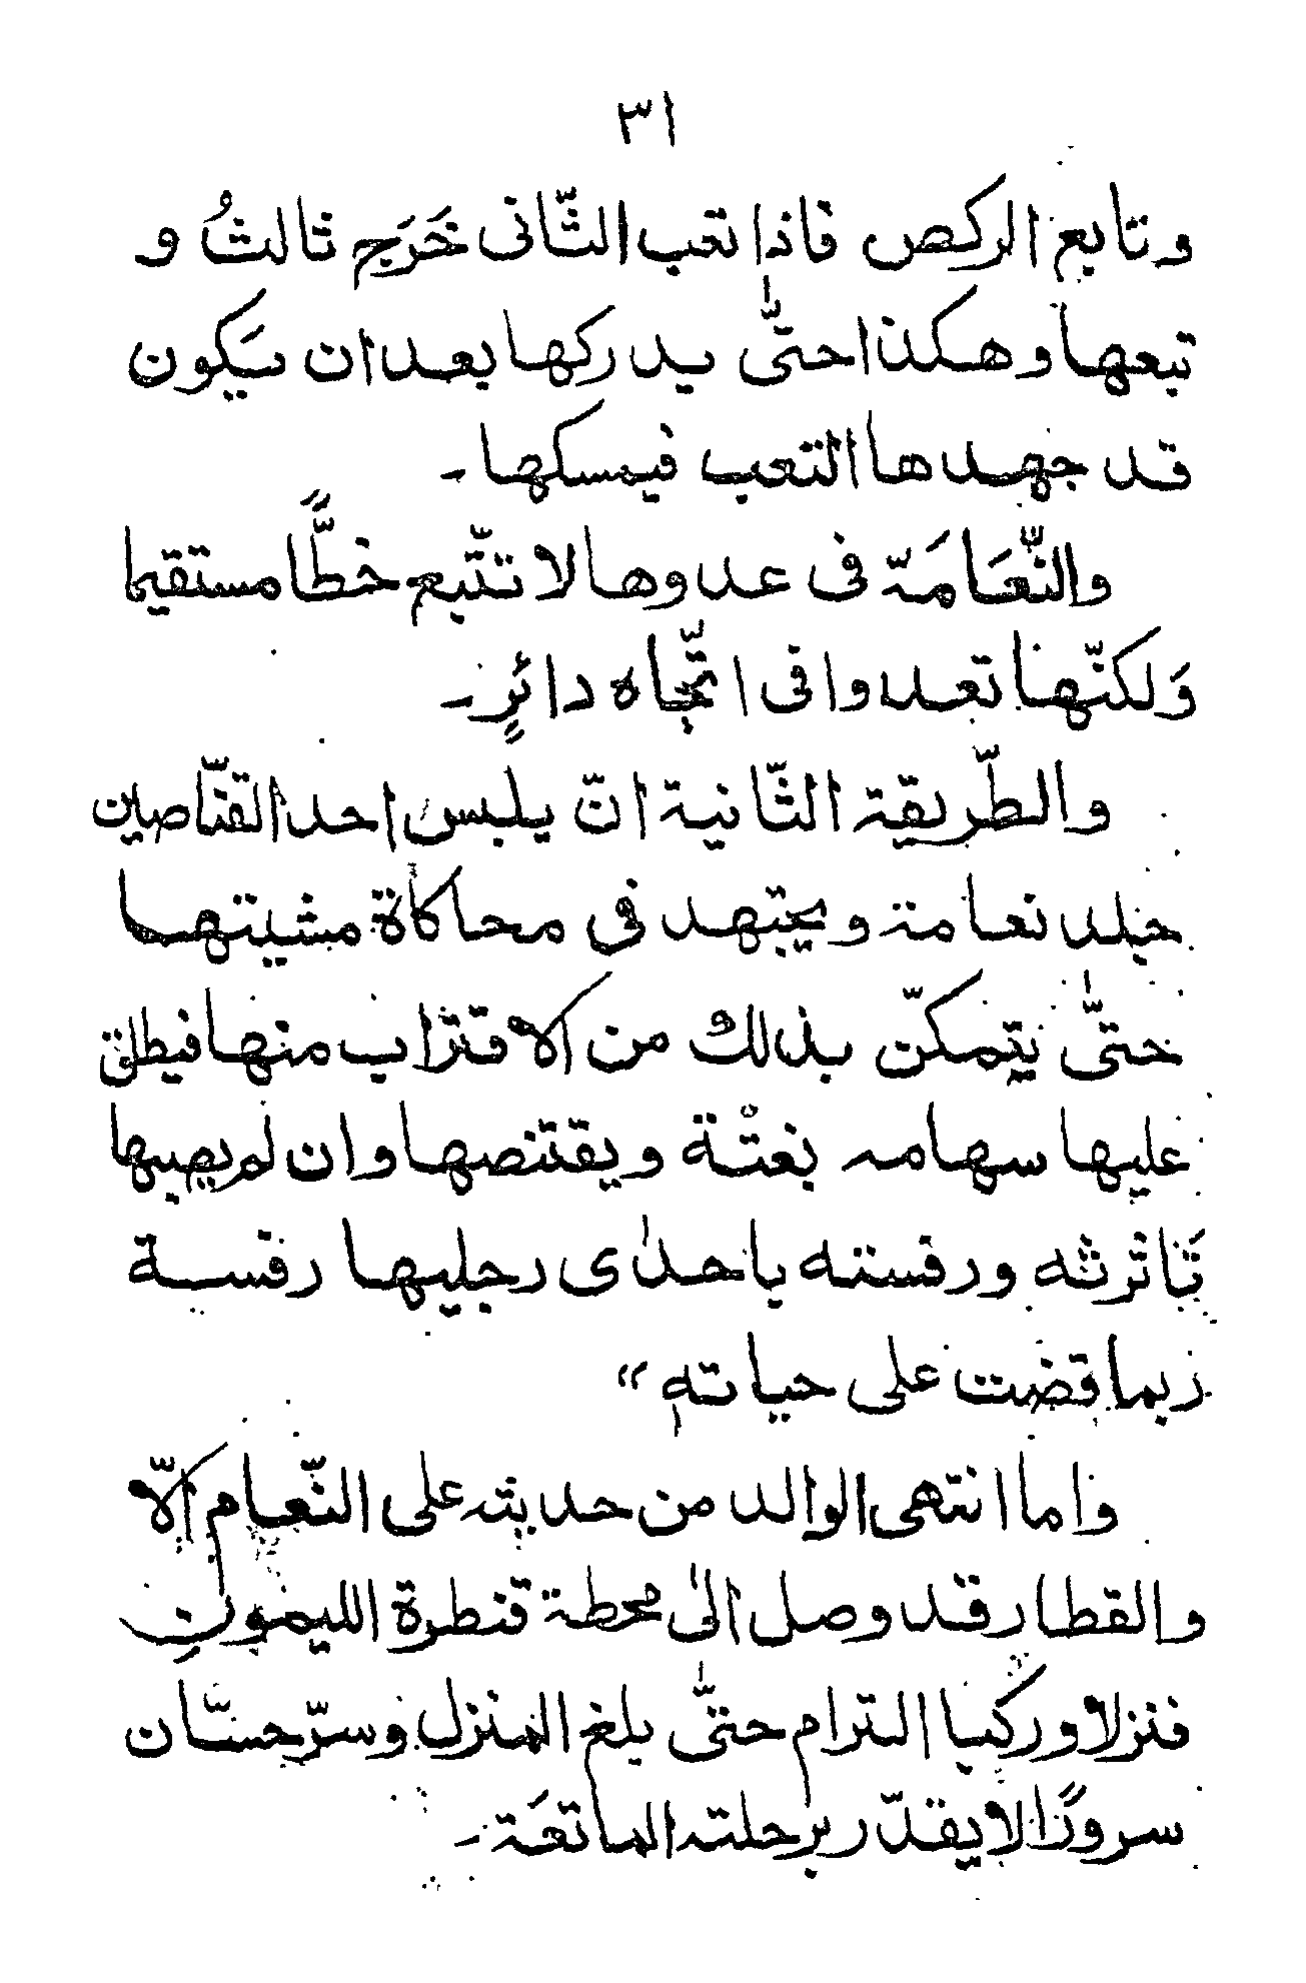 ٣١
وتابع الركض فاذا تعب الثّانى خَرَج ثالثُ و
تبعها وهكذا حتّٰى يدركها بعد ان يَكون
قد جهدها التعب فيمسكها۔
والنّعَامَة فى عدوها لا تتّبع خطًّا مستقيما
وَلكنّها تعدوا فى اتّجاه دائرٍ۔
والطّريقة الثّانية انّ يلبس احد القنّاصين
جلد نعامة ويجتهد فى محاكاة مشيتها
حتّٰى يتمكّن بذلك من الاقتراب منها فيطلق
عليها سهامه بغتْة ويقتنصها وان لم يصبها
تَاثرثه ورفسته باحدٰى رجليها رفسة
ربما قضت على حياتهٖ»
واما انتهى الوالد من حديثه على النّعام الّا
والقطار قد وصل الىٰ محطة قنطرة الليمونِ
فنزلا وركبا الترام حتّٰى بلغ المنزل وسرّ حسّان
سرورًا لا يقدّر برحلته الماتعَة۔